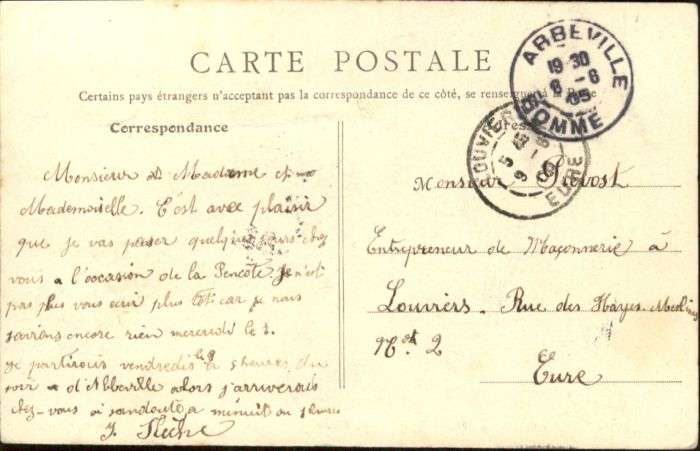 CARTE POSTALE
Certains pays étrangers n'acceptant pas la correspondance de ce côté, se renseigner à la
Correspondance
Monsieur et Madame et
Mademoiselle. C'est avec plaisir
que je vas passer quelques jours chez
vous a l'occasion de la Pencote je n'est
pas plus vous ecrir plus tôt car je nous
savions encore rien mercredi le 7.
je partirais vendredis le 9 a 5 heures du
soir d'Abbeville alors j'arriverais
chez-vous a sandoute a minuit ou 1 heure
J.
ABBEVILLE
19 30
8 - 6
05
SOMME
LOUVIERS
9 - 6
05
EURE
Monsieur Prévost
Entrepreneur de Maçonnerie à
Louviers. Rue des Hayes.
N° 2
Eure